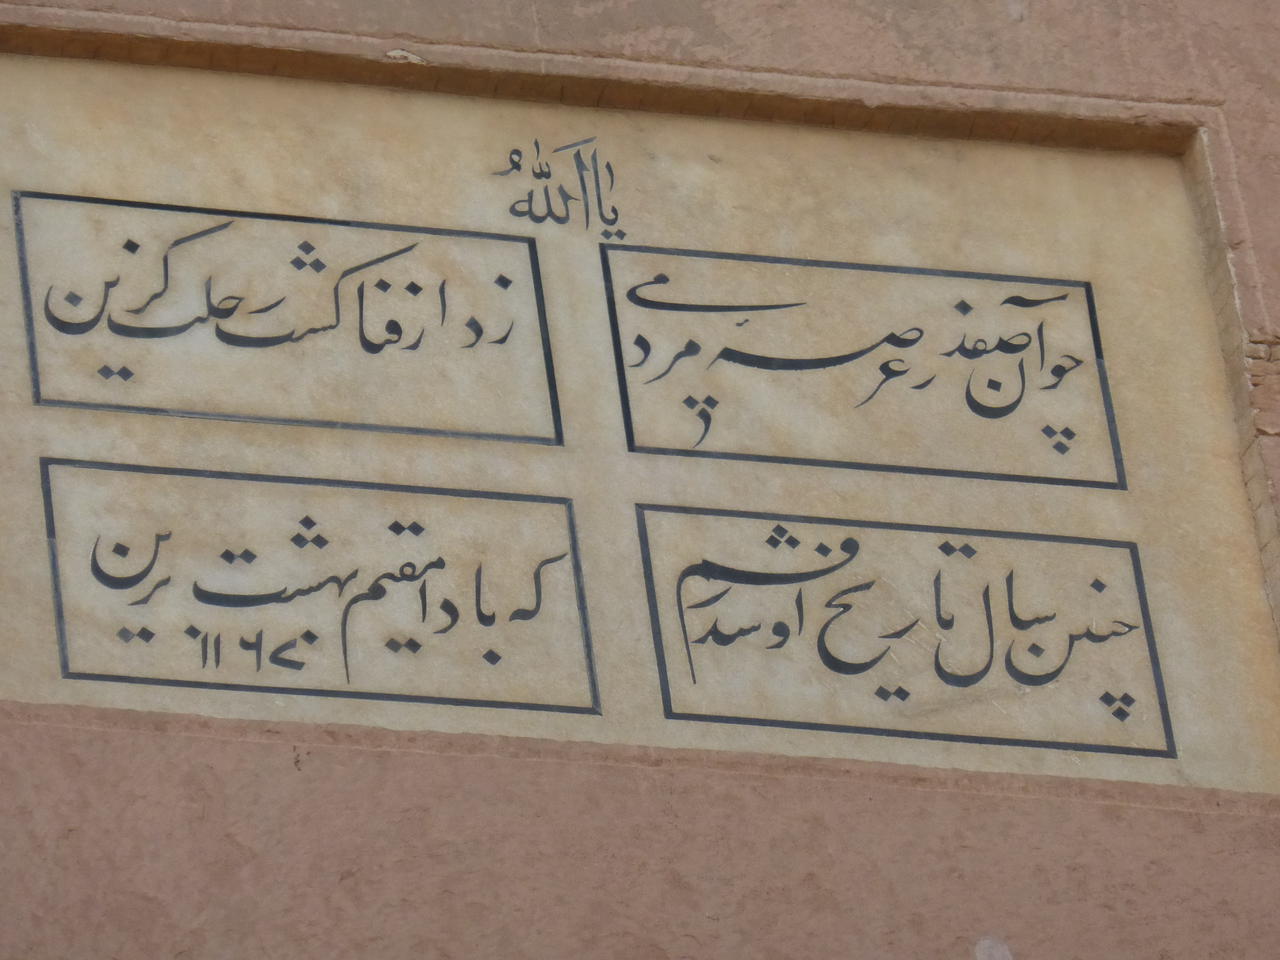 یا اللهُ
چو آن صفدر عرصه مردمی
ز دار فنا گشت رحلت گزین
چنین سال تاریخ او شد رقم
که بادا مقیم بهشت برین
۱۱۶۷